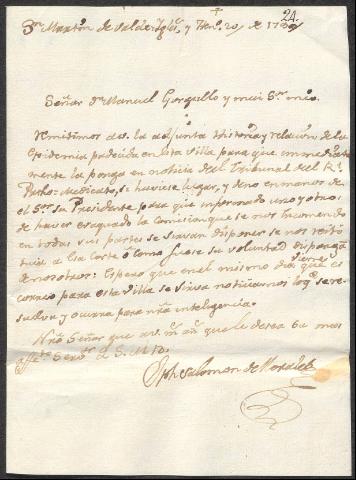 24
Sn Martin de Valde Igls, y Fen.o 20 de 17
Señor Dn Manuel Gorgullo y mui Sr mio.
Remitimos a vs. la adjunta Historia, y relacion de la
Epidemia padecida en esta Villa para que inmediata
mente la ponga en noticia del Tribunal del Rl
Proto-Medicato, si huviese lugar, y de no en manos de
el Sor su Presidente para que informado uno, y otro
de haver evaquado la Comision que se nos encomendo
en todas sus partes se sirvan disponer se nos retire
a esa Corte o como fuese su voluntad disponga
de nosotros: Espero que en el mismo dia que viene el
correo para esta Villa se sirva noticiarnos lo q.e se re
suelva y ocurra para nra inteligencia.
Nro Señor que a v. m. as que le desea su mas
affto Servor Q. S. M. B.
Jph Salomon de Morales